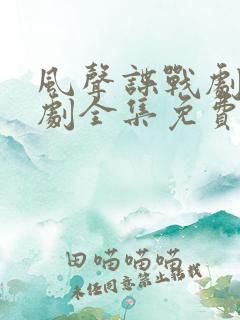 風聲諜戰劇
劇全集免費
田喵喵喵
未经同意禁止转载